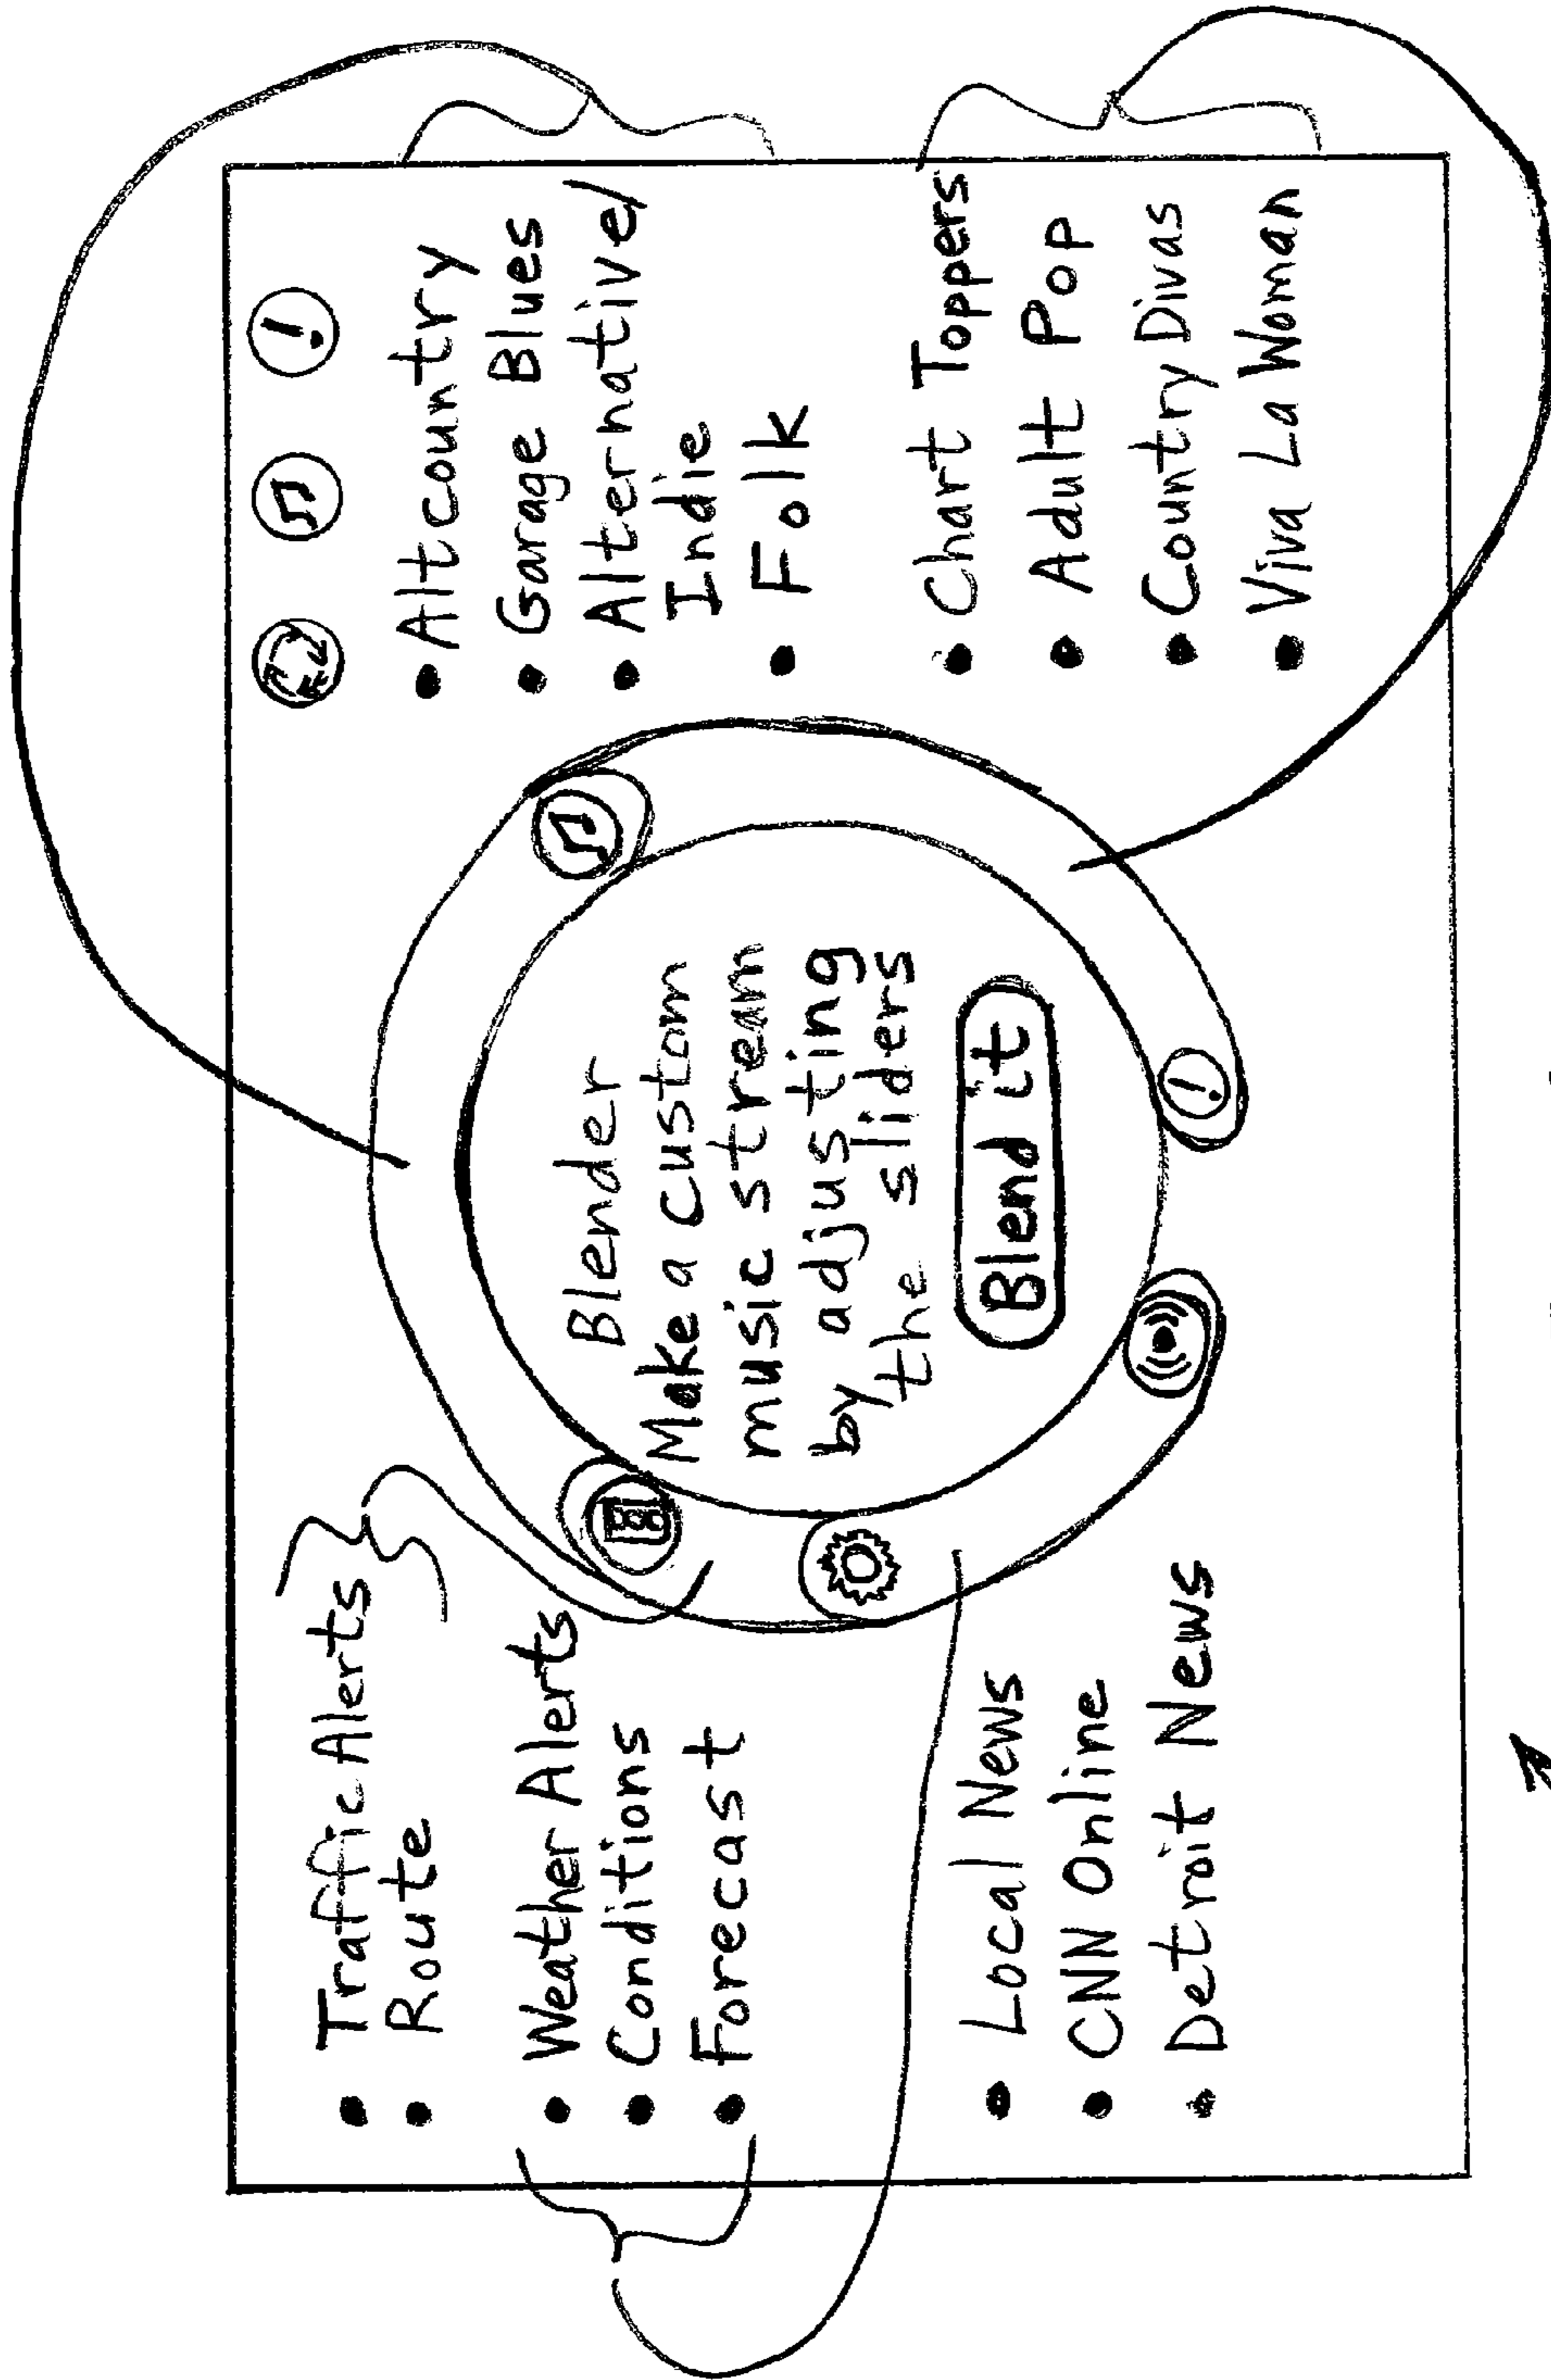 • Traffic Alerts
• Route
• Weather Alerts
• Conditions
• Forecast
• Local News
• CNN Online
• Detroit News
Blender
Make a custom
music stream
by adjusting
the sliders
Blend it
• Altcountry
• Garage Blues
• Alternative/
Indie
• Folk
• Chart Toppers
• Adult Pop
• Country Divas
• Viva La Woman